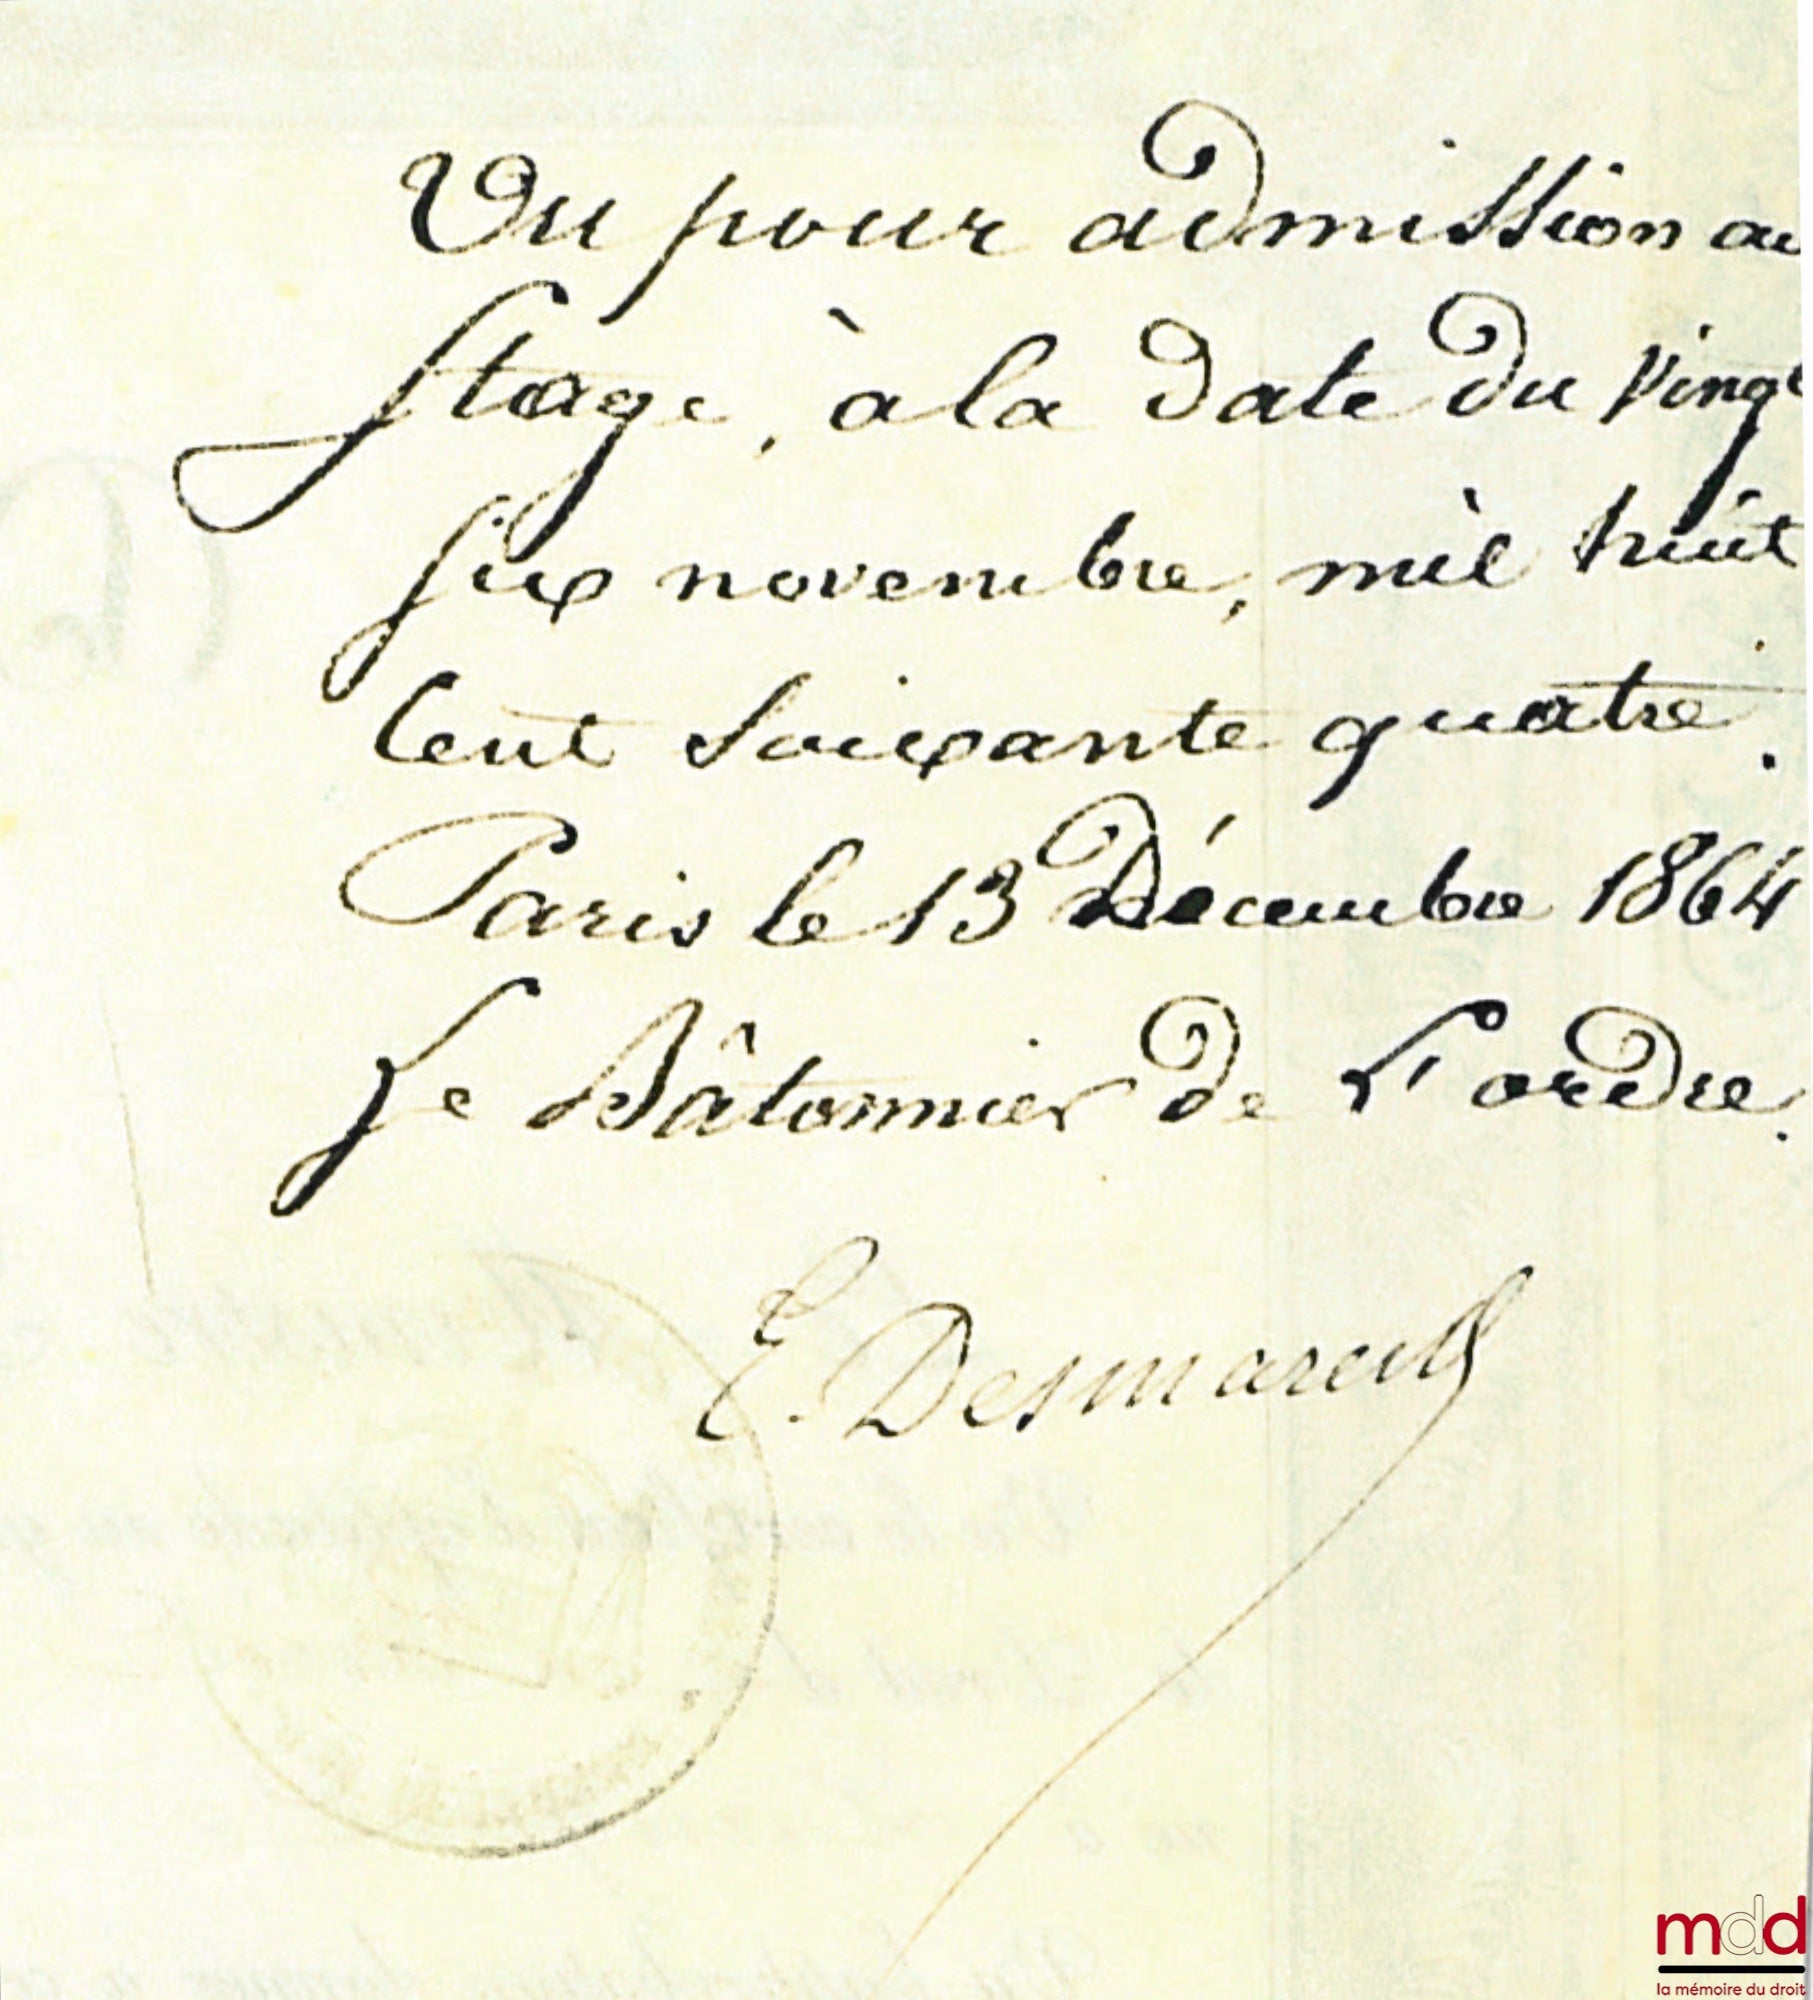 Vu pour admission au
Stage, à la date du Vingt
Six novembre, mil huit
Cent Soixante quatre.
Paris le 13 Décembre 1864
Le Bâtonnier de L'ordre.
E. Desmarest
mdd
la mémoire du droit